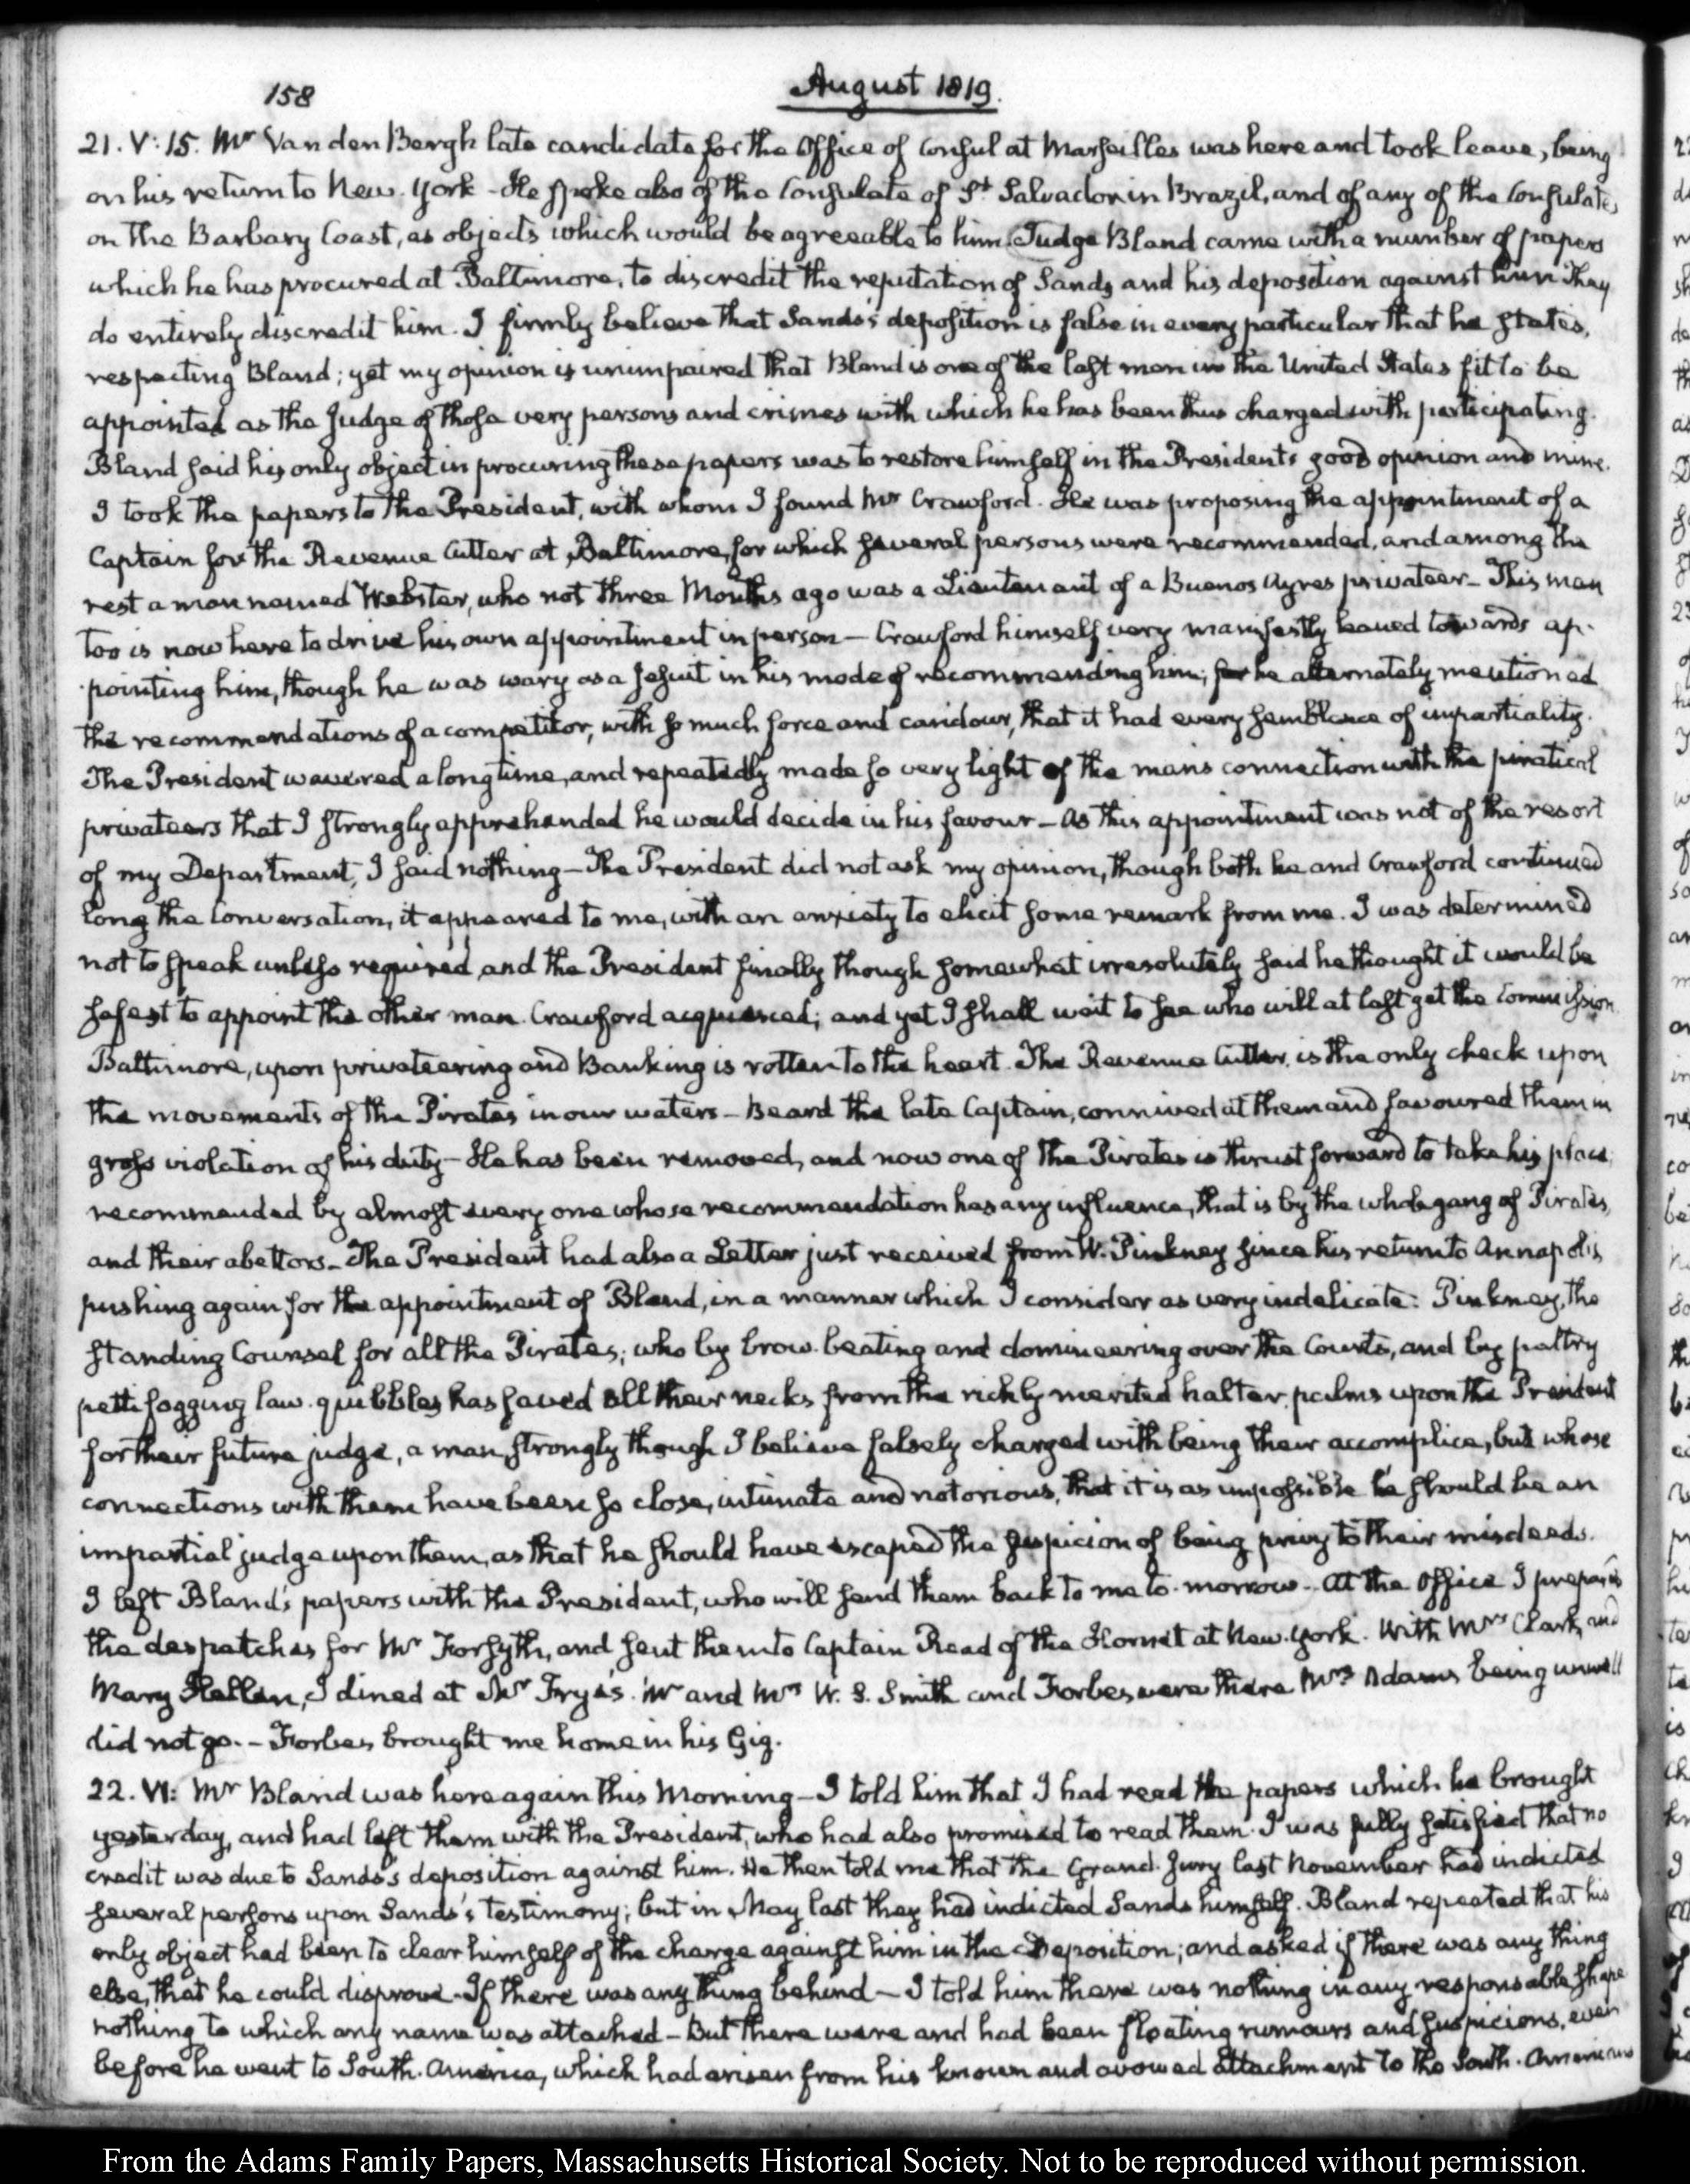 158
August 1819.
21. V: 15. Mr Van den Bergh late candidate for the Office of Consul at Marseilles was here and took leave, being
on his return to New-York - He spoke also of the Consulate of St Salvador in Brazil, and of any of the Consulates
on the Barbary Coast, as objects which would be agreeable to him. Judge Bland came with a number of papers
which he has procured at Baltimore, to discredit the reputation of Sands and his deposition against him They
do entirely discredit him. I firmly believe that Sands's deposition is false in every particular that he states,
respecting Bland; yet my opinion is unimpaired that Bland is one of the last men in the United States fit to be
appointed as the Judge of those very persons and crimes with which he has been thus charged with participating.
Bland said his only object in procuring these papers was to restore himself in the President's good opinion and mine.
I took the papers to the President, with whom I found Mr Crawford. He was proposing the appointment of a
Captain for the Revenue Cutter at Baltimore, for which several persons were recommended, and among the
rest a man named Webster, who not three Months ago was a Lieutenant of a Buenos Ayres privateer - This man
too is now here to drive his own appointment in person - Crawford himself very manifestly leaned towards ap-
-pointing him, though he was wary as a Jesuit in his mode of recommending him; for he alternately mentioned
the recommendations of a competitor, with so much force and candour, that it had every semblance of impartiality.
The President wavered a long time, and repeatedly made so very light of the man's connection with the piratical
privateers that I strongly apprehended he would decide in his favour - As this appointment was not of the resort
of my Department, I said nothing - The President did not ask my opinion, though both he and Crawford continued
long the Conversation, it appeared to me, with an anxiety to elicit some remark from me. I was determined
not to speak unless required, and the President finally though somewhat irresolutely said he thought it would be
safest to appoint the other man. Crawford acquiesced; and yet I shall wait to see who will at last get the Commission
Baltimore, upon privateering and Banking is rotten to the heart. The Revenue Cutter, is the only check upon
the movements of the Pirates in our waters - Beard the late Captain, connived at them and favoured them in
gross violation of his duty - He has been removed, and now one of the Pirates is thrust forward to take his place;
recommended by almost every one whose recommendation has any influence, that is by the whole gang of Pirates,
and their abettors - The President had also a Letter just received from W. Pinkney since his return to Annapolis,
pushing again for the appointment of Bland, in a manner which I consider as very indelicate: Pinkney, the
standing Counsel for all the Pirates; who by brow-beating and domineering over the Courts, and by paltry
pettifogging law-quibbles has saved all their necks from the richly merited halter, palms upon the President
for their future judge, a man, strongly though I believe falsely charged with being their accomplice, but whose
connections with them have been so close, intimate and notorious, that it is as impossible he should be an
impartial judge upon them, as that he should have escaped the suspicion of being privy to their misdeeds.
I left Bland's papers with the President, who will send them back to me to-morrow - At the Office I prepared
the despatches for Mr Forsyth, and sent them to Captain Read of the Hornet at New-York. With Mrs Clark, and
Mary Hellen, I dined at Mr Frye's. Mr and Mrs W. S. Smith and Forbes were there Mrs Adams being unwell
did not go. - Forbes brought me home in his Gig.
22. VI: Mr Bland was here again this Morning - I told him that I had read the papers which he brought
yesterday, and had left them with the President, who had also promised to read them. I was fully satisfied that no
credit was due to Sands's deposition against him. He then told me that the Grand-Jury last November had indicted
several persons upon Sands's testimony; but in May last they had indicted Sands himself. Bland repeated that his
only object had been to clear himself of the charge against him in the Deposition; and asked if there was any thing
else, that he could disprove - If there was any thing behind - I told him there was nothing in any responsable shape
nothing to which any name was attached - But there were and had been floating rumours and suspicions, even
before he went to South-America, which had arisen from his known and avowed attachment to the South-Americans
From the Adams Family Papers, Massachusetts Historical Society. Not to be reproduced without permission.